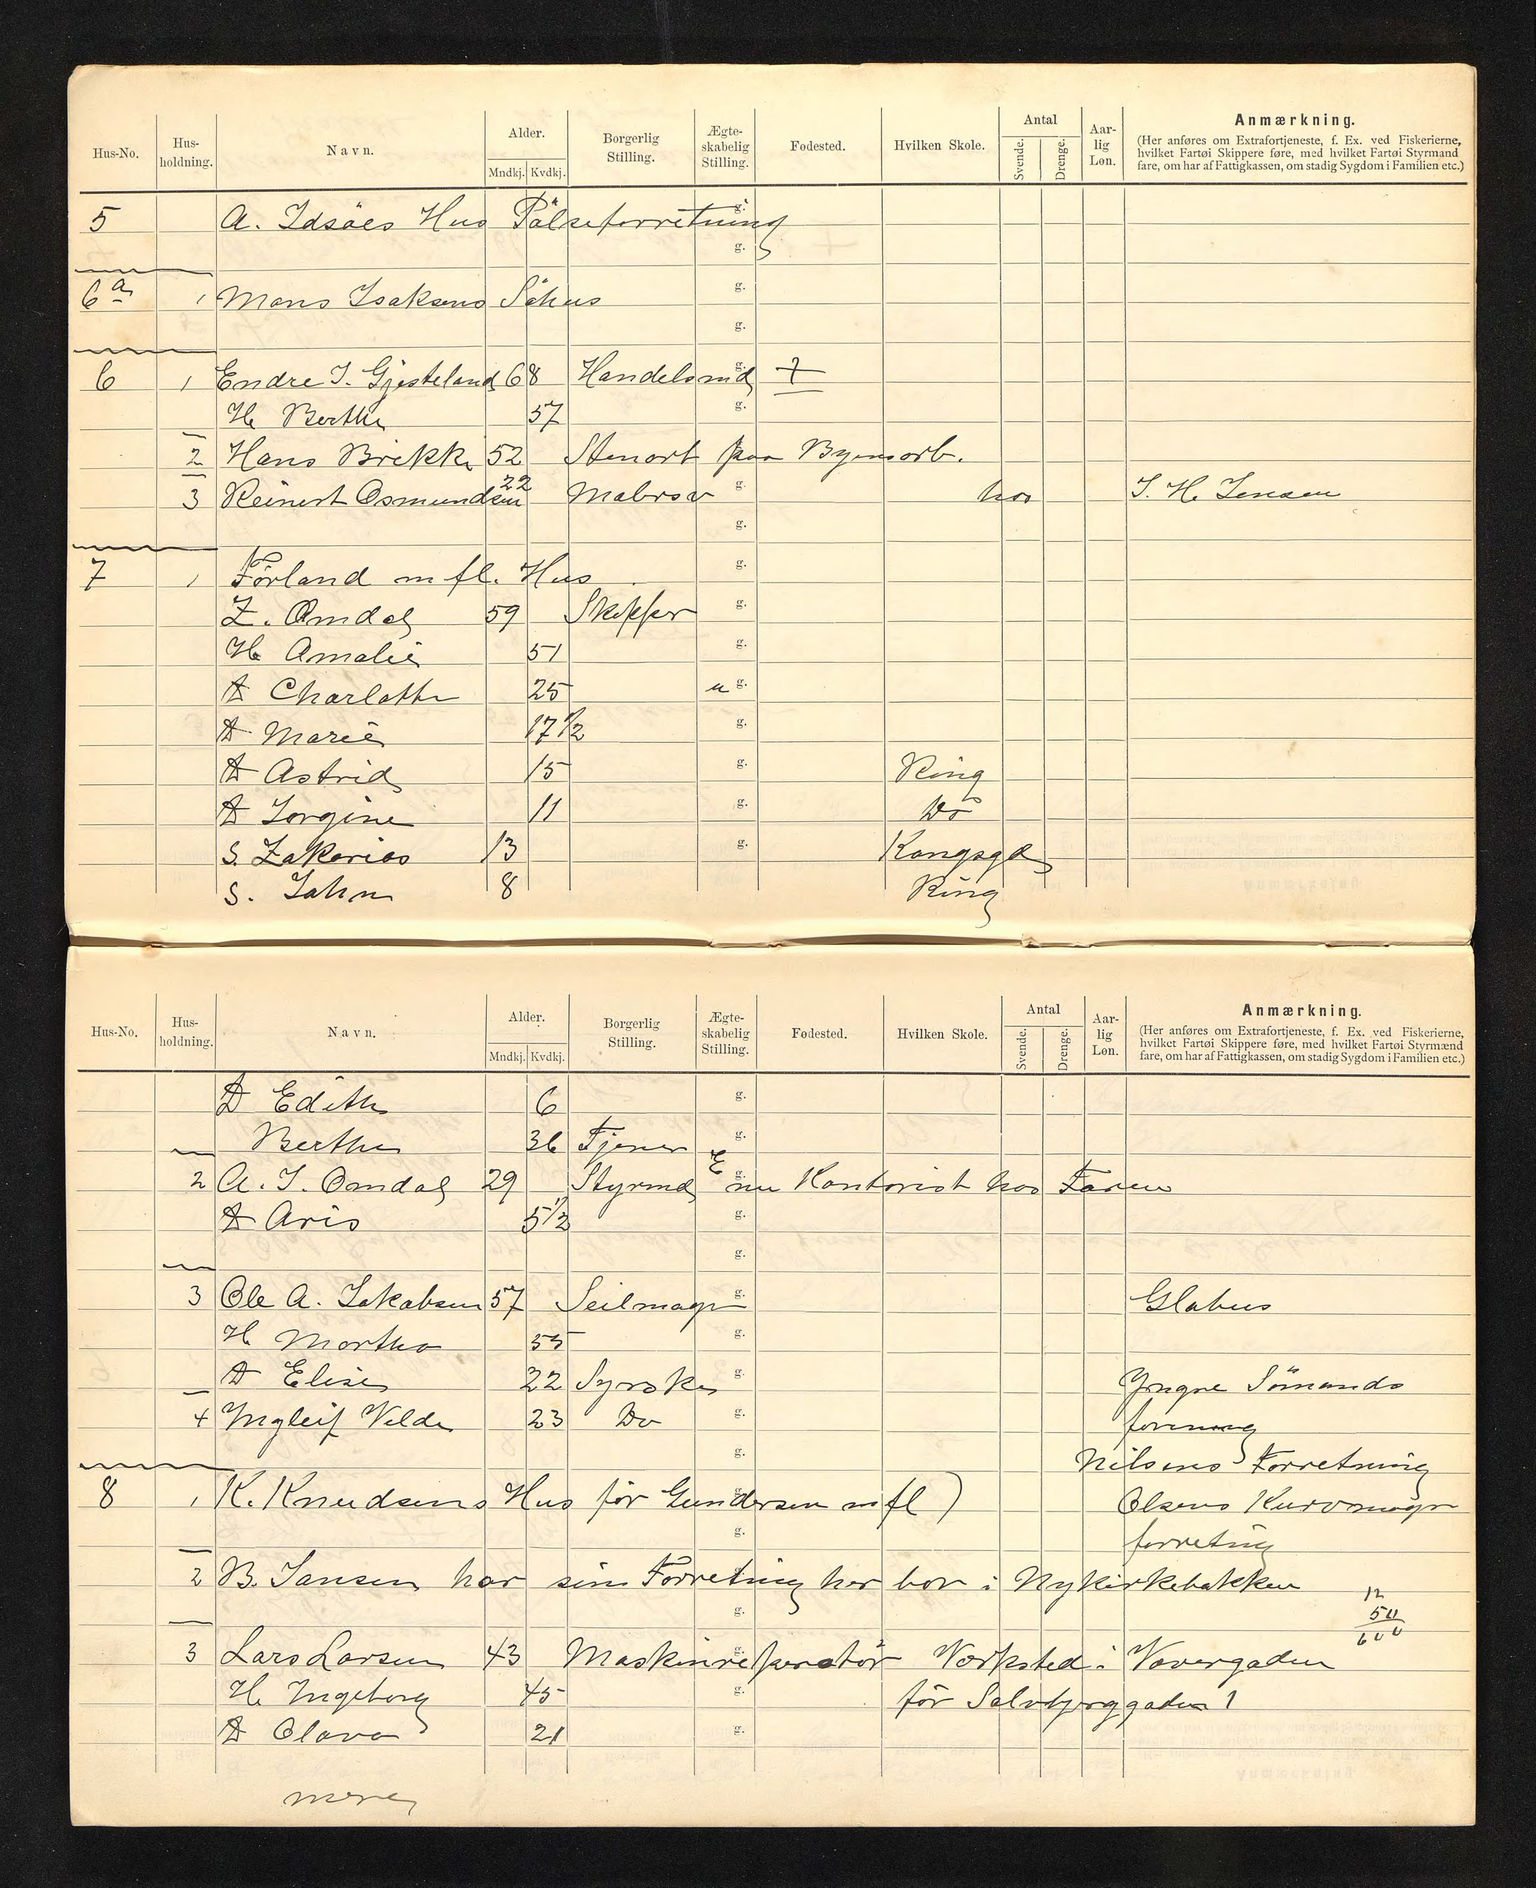 Hus-No. Hus-holdning. Navn. Alder. Mndkj. Kvdkj. Borgerlig Stilling. Ægte-skabelig Stilling. Fødested. Hvilken Skole. Antal Svende. Drenge. Aar-lig Løn. Anmærkning.
(Her anføres om Extrafortjeneste, f. Ex. ved Fiskerierne, hvilket Fartøi Skippere føre, med hvilket Fartøi Styrmænd fare, om har af Fattigkassen, om stadig Sygdom i Familien etc.)
5 A. Idsöes Hus Pölseforretning g.
g.
6a 1 Mons Isaksens Söhus g.
g.
6 1 Endre I. Gjesteland 68 Handelsmd g. +
H. Berthe 57 g.
2 Hans Brekke 52 Stenarb paa Byensarb.
3 Reinert Osmundsen 22 Malersv g. hos I. H. Jensen
g.
7 1 Førland m fl. Hus g.
Z. Omdal 59 Skipper g.
H. Amalie 51 g.
D Charlotte 25 u g.
D Marie 17 1/2 g.
D Astrid 15 g. Ring
D Jorgine 11 g. Do
S. Zakarias 13 g. Kongsgd
S. John 8 Ring
Hus-No. Hus-holdning. Navn. Alder. Mndkj. Kvdkj. Borgerlig Stilling. Ægte-skabelig Stilling. Fødested. Hvilken Skole. Antal Svende. Drenge. Aar-lig Løn. Anmærkning.
(Her anføres om Extrafortjeneste, f. Ex. ved Fiskerierne, hvilket Fartøi Skippere føre, med hvilket Fartøi Styrmænd fare, om har af Fattigkassen, om stadig Sygdom i Familien etc.)
D Edith 6 g.
Berthe 36 Tjener g.
2 A. I. Omdal 29 Styrmd E g. nu Kontorist hos Faren
D Aris 5 1/2 g.
g.
3 Ole A. Jakobsen 57 Seilmagr g. Globus
H Martha 55 g.
D Elise 22 Syerske g. Yngre Sömands
4 Ingleif Velde 23 Do g. forening
g. Nilsens Forretning
8 1 K. Knudsens Hus før Gundersen m fl) g. Olsens Kurvmagr
g. forretnig
2 B. Jansen har sin Forretnig her bor i Nykirkebakken
g. 12
50
600
3 Lars Larsen 43 Maskinreparatör g. Værksted i Vovergaden
H. Ingeborg 45 g. før Sølvbjerggaden 1
D Olava 21 g.
mere